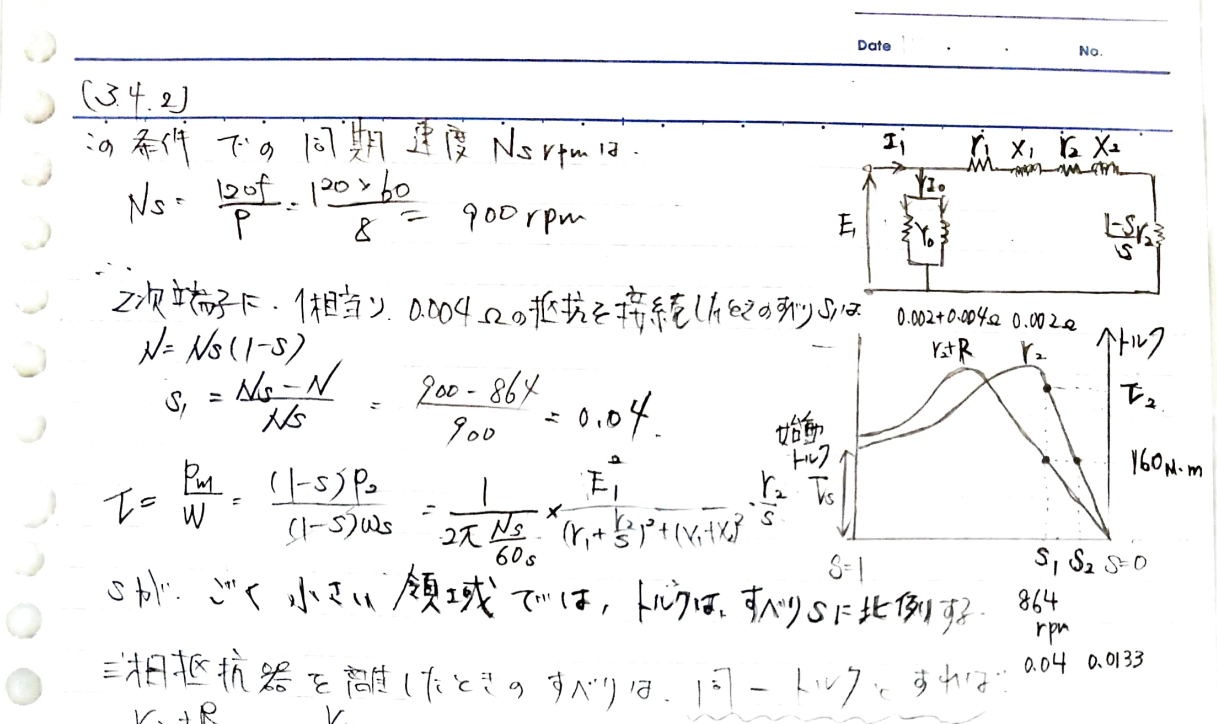 Date . . No.
[3.4.2]
この条件での同期速度 Ns rpmは.
Ns = 120f/P = 120×60/8 = 900 rpm
2次端子に、1相当り、0.004Ωの抵抗を接続したときのすべりS₁は
N = Ns(1-S)
S₁ = Ns-N/Ns = 900-864/900 = 0.04.
τ = Pm/W = (1-S)P₂/(1-S)ωs = 1/2π Ns/60s × E₁²/(r₁+r₂/S)²+(x₁+x₂)² · r₂/S
Sが、ごく小さい領域では、トルクは、すべりSに比例する.
三相抵抗器を離したときのすべりは、同一トルクとすれば
r₂+R r₂
I₁ r₁ x₁ r₂ x₂
I₀
E₁ Y₀ 1-S/S r₂
0.002+0.004Ω 0.002Ω
r₂+R r₂ トルク
τ₂
始動
トルク
τs
160N·m
S=1 S₁ S₂ S=0
864
rpm
0.04 0.0133